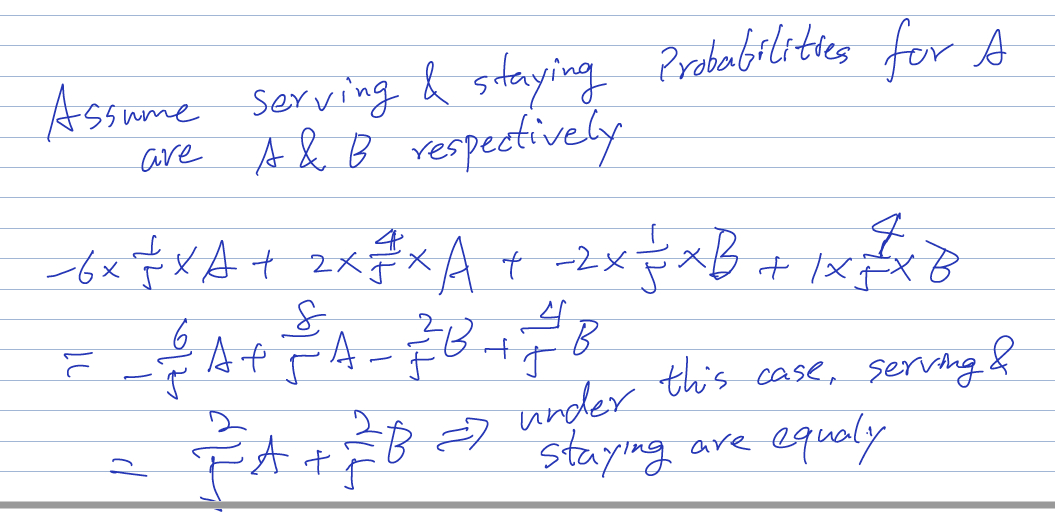 Assume serving & staying Probabilities for A
are A & B respectively
-6 × 1/5 × A + 2 × 4/5 × A + -2 × 1/5 × B + 1 × 4/5 × B
= - 6/5 A + 8/5 A - 2/5 B + 4/5 B
= 2/5 A + 2/5 B => under this case, serving &
staying are equaly